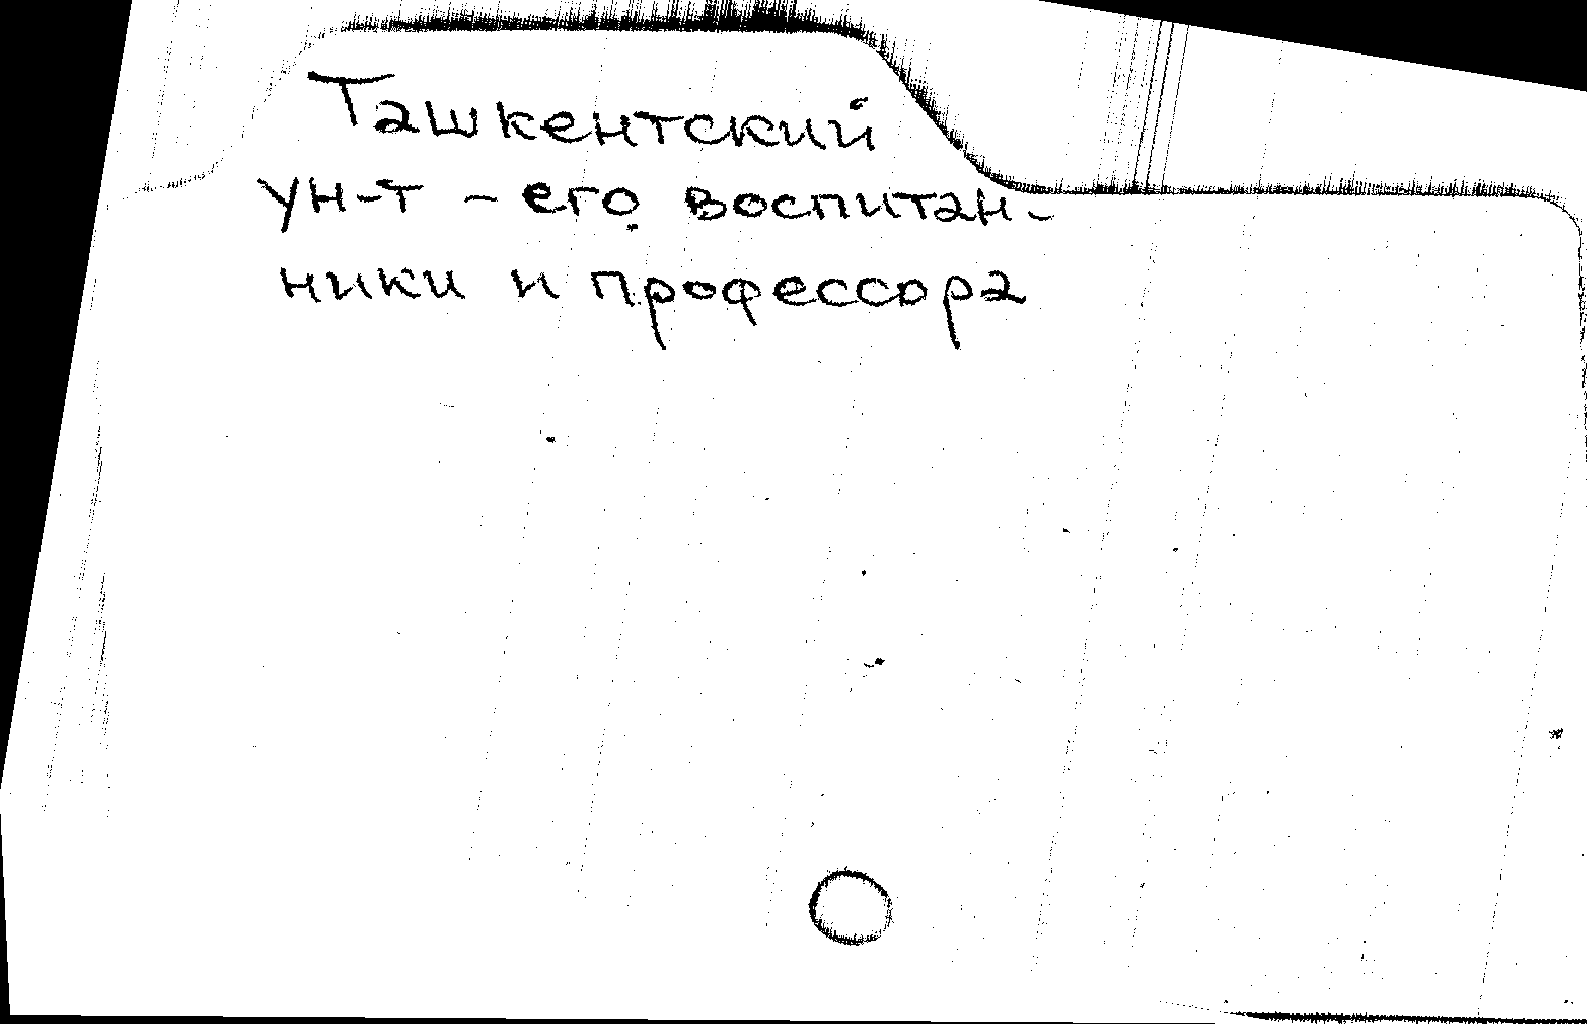 Ташкентский
ун-т - его воспитан-
ники и профессора